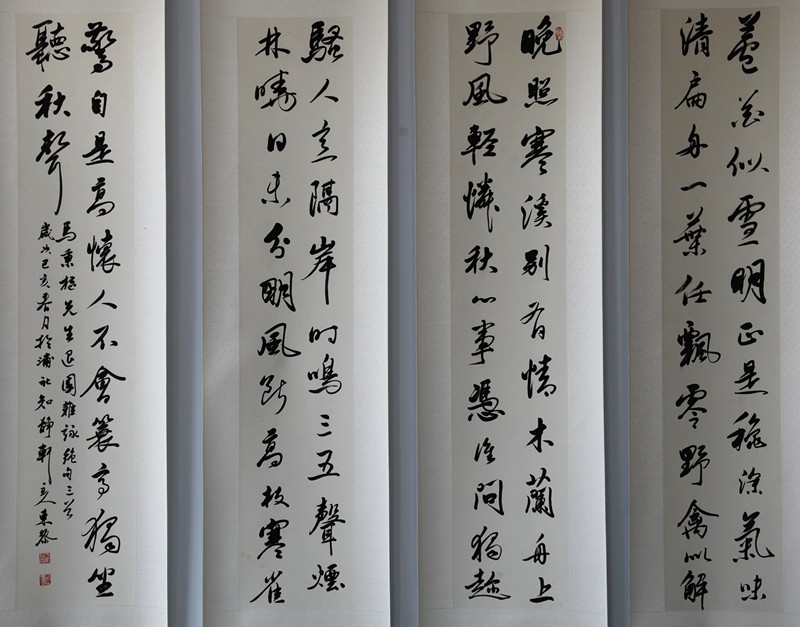 晚照寒溪别有情木蘭舟上
野風輕憐秋心事憑誰問獨趁
蘆花似雪明正是穐深氣味
清扁舟一葉任飄零野禽似解
騷人意隔岸時鳴三五聲煙
林曉日未分明風斷高枝寒雀
驚自是高懷人不會簑獨坐
聽秋聲
馬秉先生退園雜詠絕句三首
歲次己亥春月於浦社知靜軒東黎